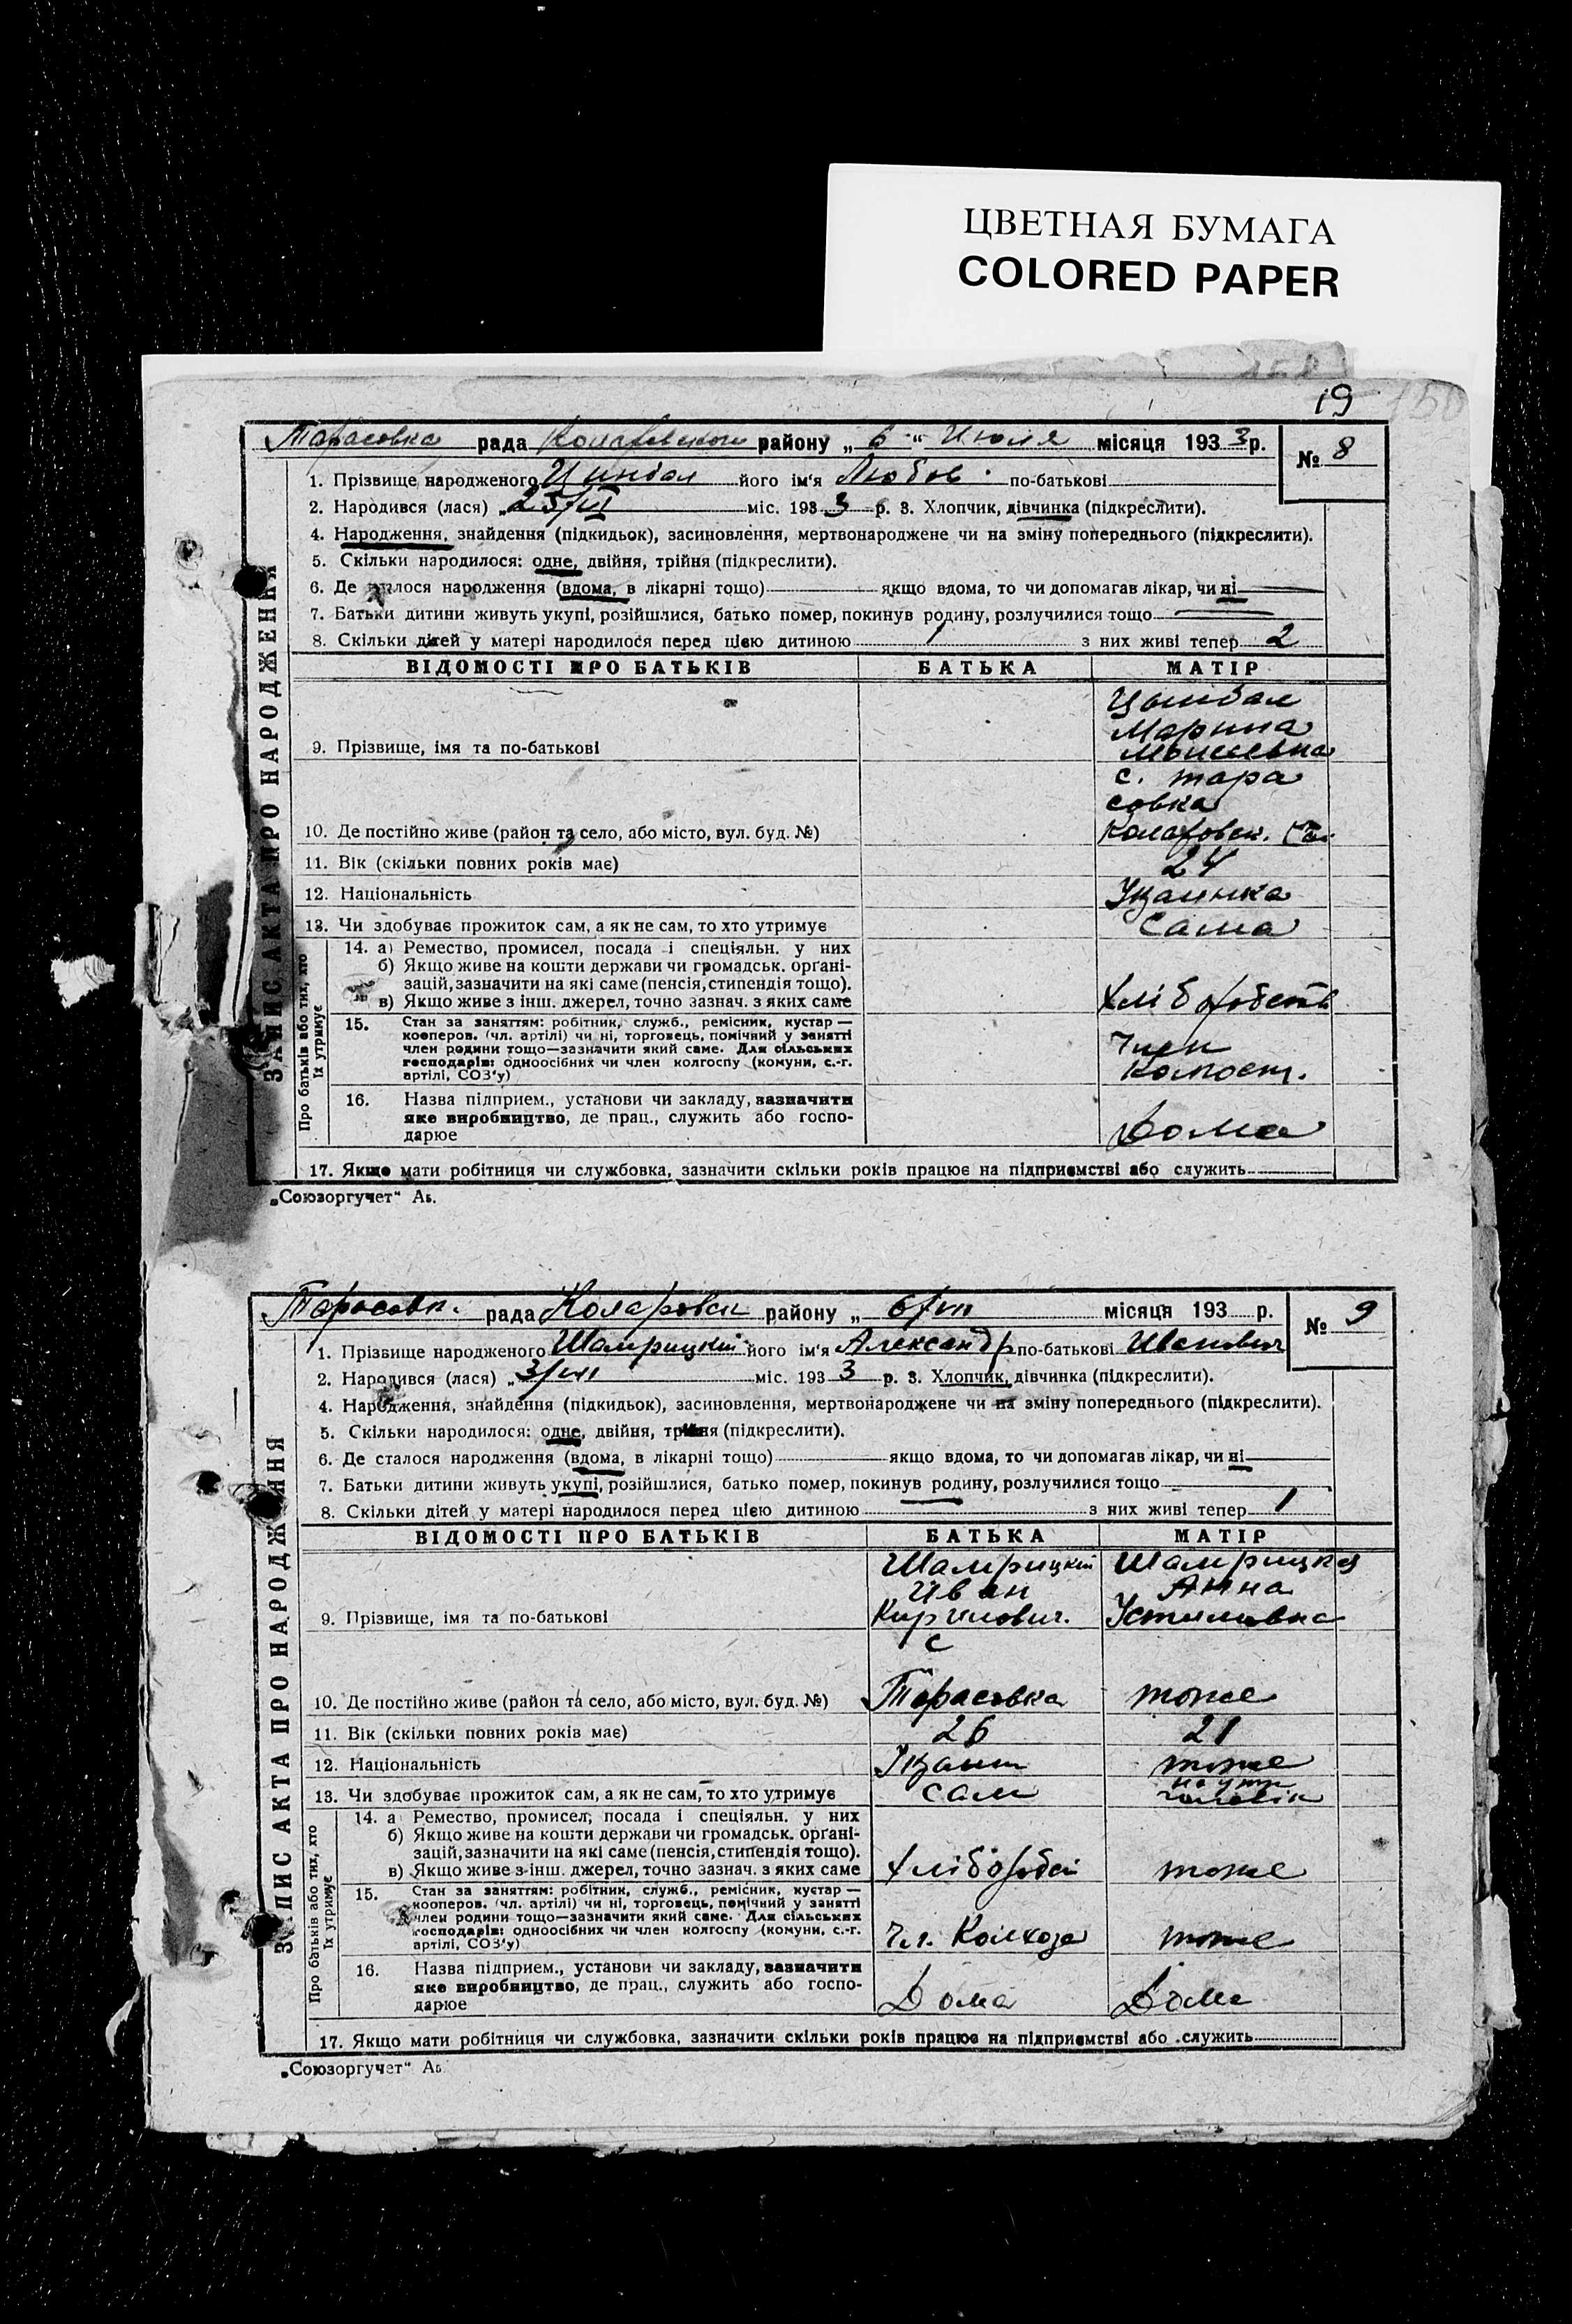 ЦВЕТНАЯ БУМАГА
COLORED PAPER
19
150
Тарасовка рада Коларовского району „ 6 “ Июля місяця 1933 р.
№ 8
1. Прізвище народженого Цинбал його ім'я Любов по-батькові
2. Народився (лася) „ 25/VI міс. 1933 р. 3. Хлопчик, дівчинка (підкреслити).
4. Народження, знайдення (підкидьок), засиновлення, мертвонароджене чи на зміну попереднього (підкреслити).
5. Скільки народилося: одне, двійня, трійня (підкреслити).
6. Де сталося народження (вдома, в лікарні тощо) якщо вдома, то чи допомагав лікар, чи ні
7. Батьки дитини живуть укупі, розійшлися, батько помер, покинув родину, розлучилися тощо
8. Скільки дітей у матері народилося перед цією дитиною 1 з них живі тепер 2
ВІДОМОСТІ ПРО БАТЬКІВ БАТЬКА МАТІР
Цынбал
Марина
Моисеевна
9. Прізвище, імя та по-батькові
с. тара
совка
10. Де постійно живе (район та село, або місто, вул. буд. №) Коларовск.
11. Вік (скільки повних років має) 24
12. Національність Украинка
13. Чи здобуває прожиток сам, а як не сам, то хто утримує Сама
14. а) Ремество, промисел, посада і спеціяльн. у них
б) Якщо живе на кошти держави чи громадськ. органі-
зацій, зазначити на які саме (пенсія, стипендія тощо).
в) Якщо живе з інш. джерел, точно зазнач. з яких саме Хліборобств
15. Стан за заняттям: робітник, служб., ремісник, кустар —
кооперов. (чл. артілі) чи ні, торговець, помічний у занятті
член родини тощо—зазначити який саме. Для сільських
господарів: одноосібних чи член колгоспу (комуни, с.-г.
артілі, СОЗ'у)
Член
16. Назва підприєм., установи чи закладу, зазначити
яке виробництво, де прац., служить або госпо-
дарює
Дома
17. Якщо мати робітниця чи службовка, зазначити скільки років працює на підприємстві або служить
ЗАПИС АКТА ПРО НАРОДЖЕННЯ
Про батьків або тих, хто
їх утримує
„Союзоргучет“ Аь.
Тарасовк. рада Коларовск району „ 6/VII місяця 193 р.
№ 9
1. Прізвище народженого Шамрицкий його ім'я Александр по-батькові Иванович
2. Народився (лася) „ 3/VII міс. 1933 р. 3. Хлопчик, дівчинка (підкреслити).
4. Народження, знайдення (підкидьок), засиновлення, мертвонароджене чи на зміну попереднього (підкреслити).
5. Скільки народилося: одне, двійня, трійня (підкреслити).
6. Де сталося народження (вдома, в лікарні тощо) якщо вдома, то чи допомагав лікар, чи ні
7. Батьки дитини живуть укупі, розійшлися, батько помер, покинув родину, розлучилися тощо
8. Скільки дітей у матері народилося перед цією дитиною з них живі тепер 1
ВІДОМОСТІ ПРО БАТЬКІВ БАТЬКА МАТІР
Шамрицкий Шамрицкая
Иван Анна
9. Прізвище, імя та по-батькові Кирилович. Устимовна
с
10. Де постійно живе (район та село, або місто, вул. буд. №) Тарасовка тоже
11. Вік (скільки повних років має) 26 21
12. Національність Украин тоже
13. Чи здобуває прожиток сам, а як не сам, то хто утримує сам
14. а Ремество, промисел, посада і спеціяльн. у них
б) Якщо живе на кошти держави чи громадськ. органі-
зацій, зазначити на які саме (пенсія, стипендія тощо).
в) Якщо живе з інш. джерел, точно зазнач. з яких саме тоже
15. Стан за заняттям: робітник, служб., ремісник, кустар —
кооперов. (чл. артілі) чи ні, торговець, помічний у занятті
член родини тощо—зазначити який саме. Для сільських
господарів: одноосібних чи член колгоспу (комуни, с.-г.
артілі, СОЗ'у) Чл. Колхоза тоже
16. Назва підприєм., установи чи закладу, зазначити
яке виробництво, де прац., служить або госпо-
дарює Дома Дома
17. Якщо мати робітниця чи службовка, зазначити скільки років працює на підприємстві або служить
ЗАПИС АКТА ПРО НАРОДЖЕННЯ
Про батьків або тих, хто
їх утримує
„Союзоргучет“ Аь